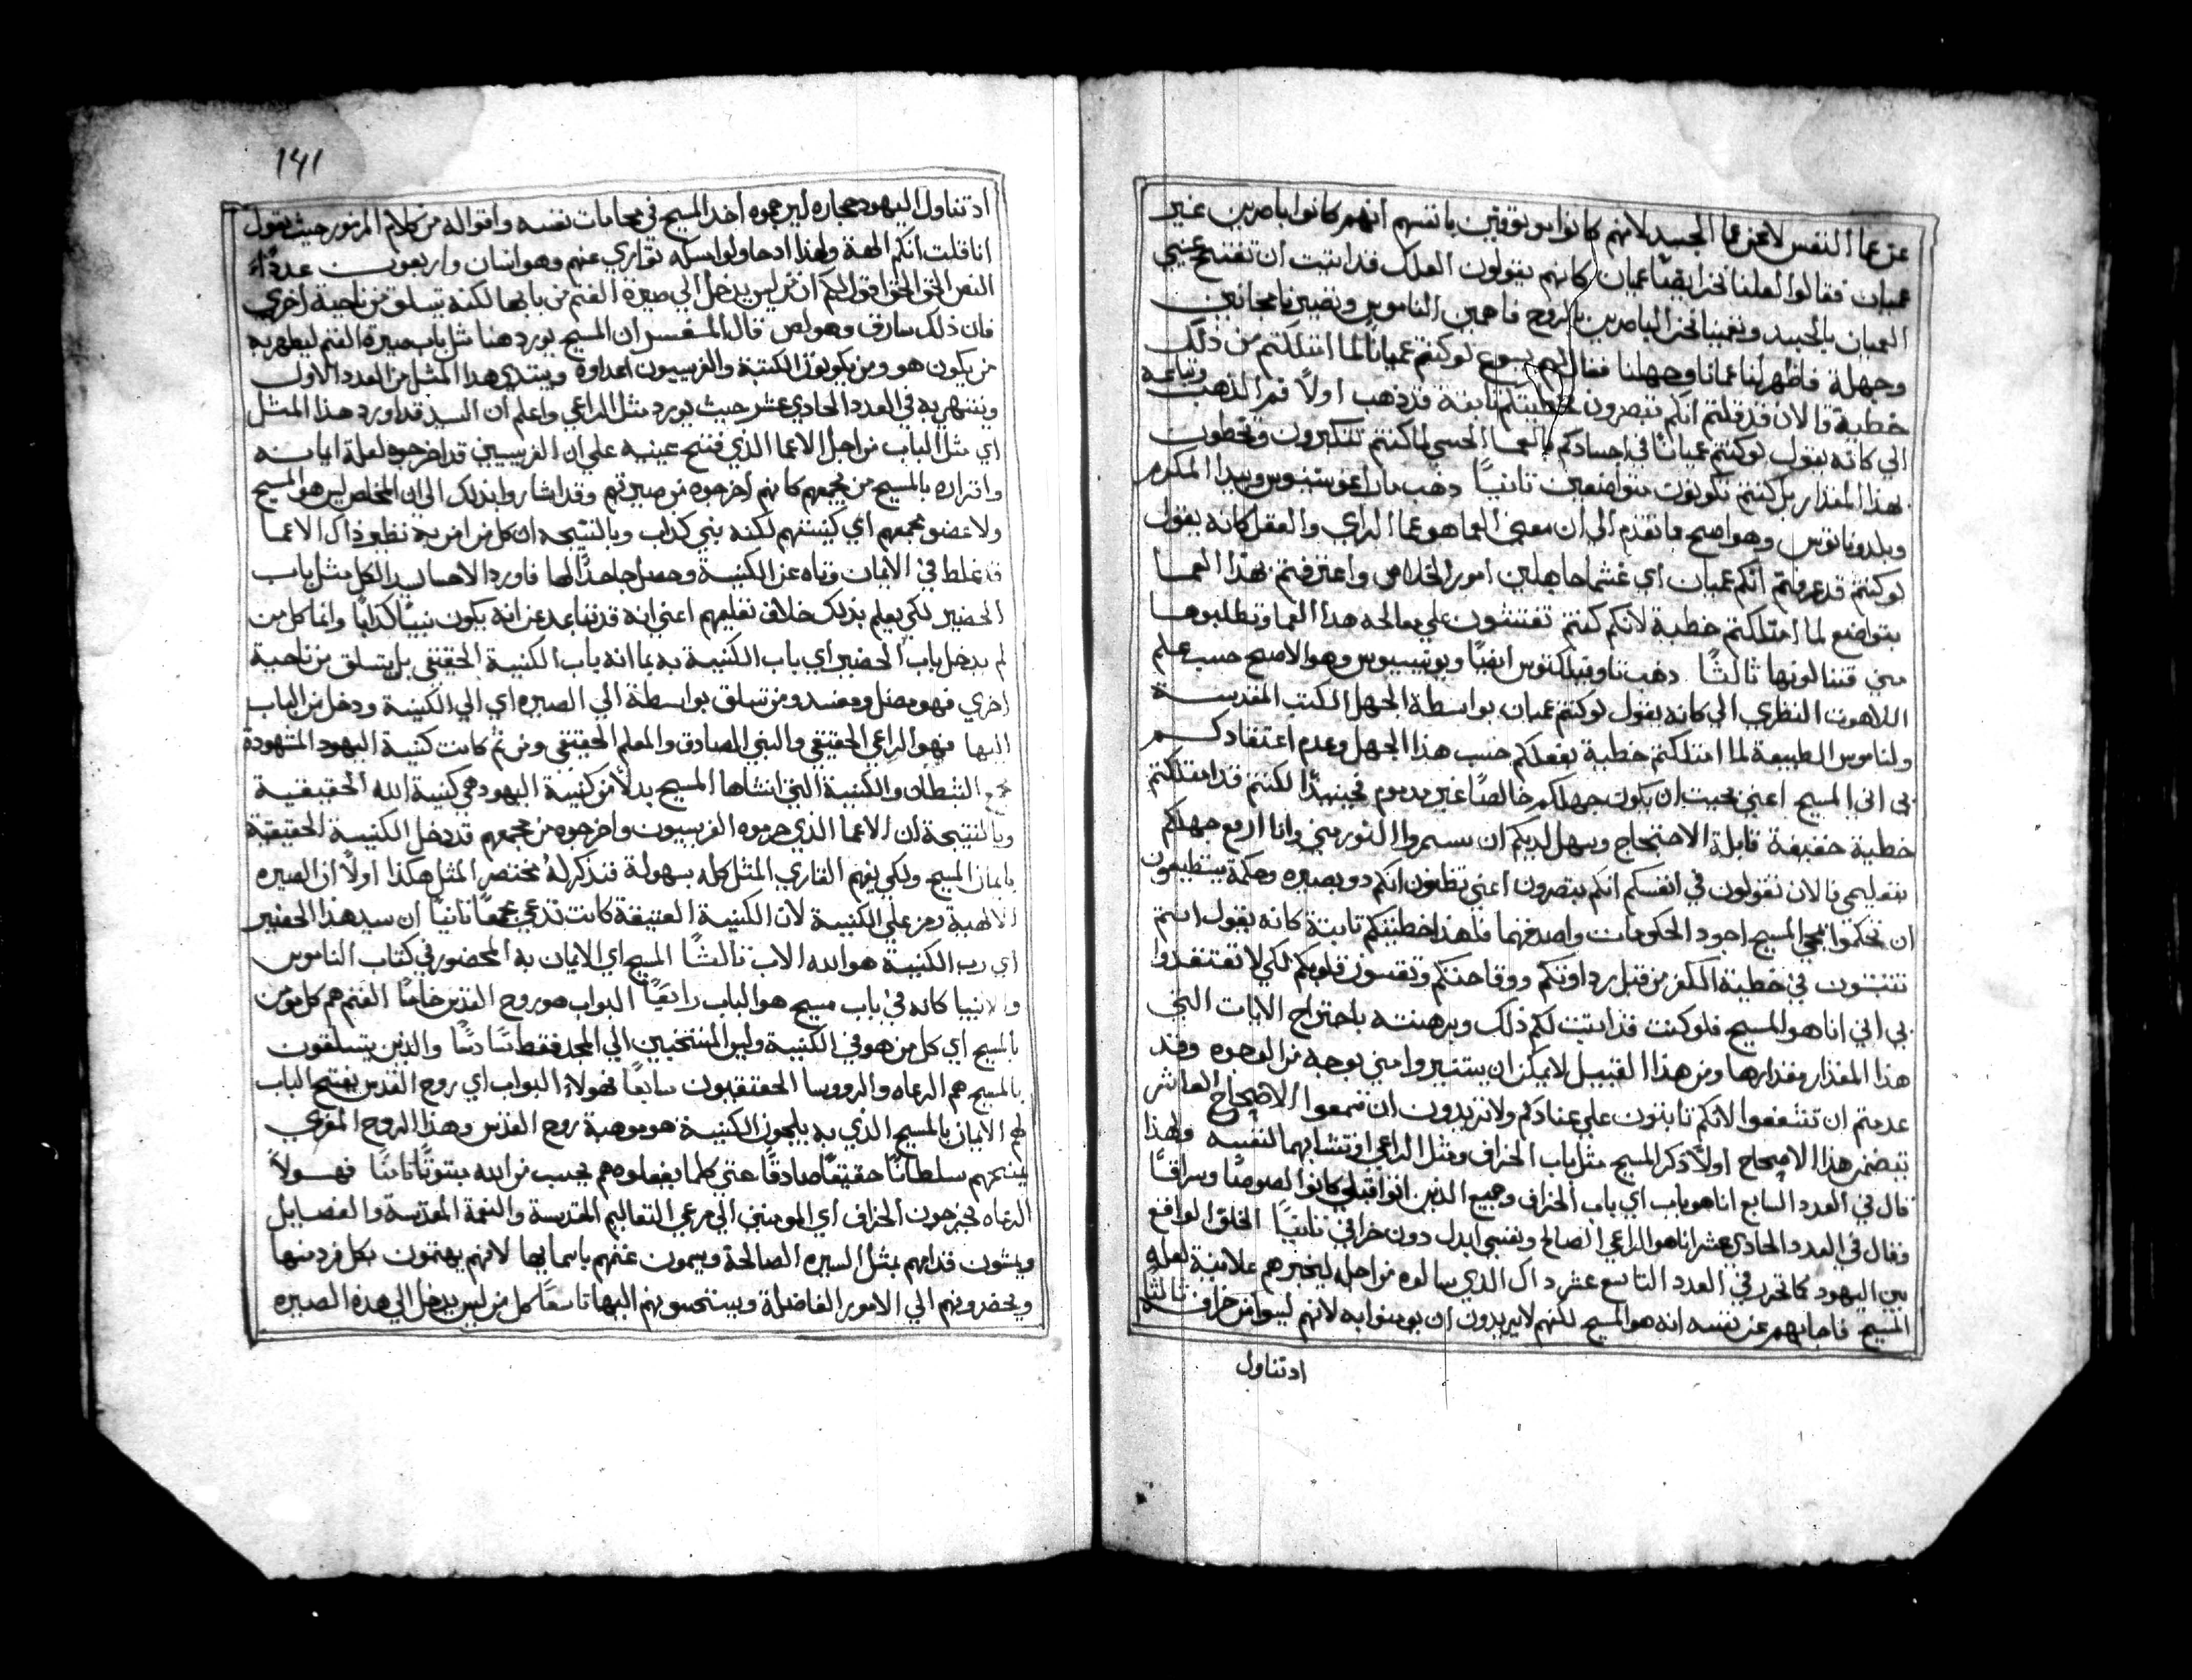 عن عما النفس لا عن عما الجسد لانهم كانوا يوتوقين بانفسهم انهم كانوا باصرين غير
عميان فقالوا لعلنا نحن ايضًا عميان كانهم يقولون العلك قد اتيت ان تفتح عيني
العميان بالجسد وتعمينا نحن الباصرين بالروح فاهمين الناموس وتصيرنا مجانين
وجهلة فاظهر لنا عمانا وجهلنا فقال لهم يسوع لو كنتم عميانًا لما امتلكتم من ذلك
خطية فالان قد قلتم انكم تبصرون فخطيتكم ثابتة قد ذهب اولاً فم الذهب وتباعه
الي كانه يقول لو كنتم عميانًا في اجسادكم بالعما الحسي لما كنتم تتكبرون وتخطون
بهذا المقدار بل كنتم تكونون متواضعين ثانيًا ذهب مار اغوستينوس وبيدا المكرم
وبلدوناتوس وهو اصح مما تقدم الي ان معني العما هو عما الراي والعقل كانه يقول
لو كنتم قد عرفتم انكم عميان اي غشما جاهلين امور الخلاص واعترفتم بهذا العما
بتواضع لما امتلكتم خطية لانكم كنتم تفتشون علي معالجه هذا العما وتطلبوها
مني فتنالونها ثالثًا ذهب تاوفيلكتوس ايضًا ويونسيوس وهو الاصح حسب علم
اللاهوت النظري الي كانه يقول لو كنتم عميان بواسطة الجهل الكتب المقدسة
ولناموس الطبيعة لما امتلكتم خطية بفعلكم حسب هذا الجهل وعدم اعتقادكم
بي اني المسيح اعني بحيث ان يكون جهلكم خالصًا غير مدموم فحينيدًا لكنتم قد امتلكتم
خطية خفيفة قابلة الاحتجاج وسهل لديكم ان تستمروا النور مني وانا ارفع جهلكم
بتعليمي فالان تقولون في انفسكم انكم تبصرون اعني تظنون انكم دو بصيره وحكمة تستطيعون
ان تحكموا بمجي المسيح اجود الحكومات واصدقها فلهذا خطيتكم ثابتة كانه يقول انتم
تثبتون في خطية الكفر من قبل رداوتكم ووقاحتكم وتقسون قلوبكم لكي لا تعتقدوا
بي اني انا هو المسيح فلو كنت قد اثبت لكم ذلك وبرهنته باجتراح الايات التي
هذا المقدار مقدارها ومن هذا القبيل لا يمكن ان يستنيروا مني بوجه من الوجوه وقد
عدمتم ان تنتفعوا لانكم ثابتون علي عنادكم ولا تريدون ان تسمعوا الاصحاح العاشر
يتضمن هذا الاصحاح اولاً ذكر المسيح مثل باب الخراف ومثل الراعي او تشابهما لنفسه ولهذا
قال في العدد السابع انا هو باب اي باب الخراف وجميع الذين اتوا قبلي كانوا لصوصًا وسراقًا
فقال في العدد الحادي عشر انا هو الراعي الصالح ونفسي ابدل دون خرافي ثانيًا الخلق الواقع
بين اليهود كما تحرر في العدد التاسع عشر داك الذي سالوه من اجله ليخبرهم علانية لعله
المسيح فاجابهم عن نفسه انه هو المسيح لكنهم لا يريدون ان يومنوا به لانهم ليسوا من خرافه ثالثًا
ادتناول
141
ادتناول اليهود حجاره ليرجموه اخد المسيح في محامات نفسه واقواله من كلام المزمور حيث يقول
انا قلت انكم الهة ولهذا ادحاولوا مسكه تواري عنهم وهو اثنان واربعون عددًا
النص الحق الحق اقول لكم ان من ليس يدخل الي صيرة الغنم من بابها لكنه يتسلق من ناحية اخري
فان ذلك سارق وهو لص قال المفسر ان المسيح يورد هنا مثل باب صيرة الغنم ليظهر به
من يكون هو ومن يكونون الكتبة والفريسيون اعداوه ويبتدي هذا المثل من العدد الاول
وينتهي به في العدد الحادي عشر حيث يورد مثل الراعي واعلم ان السيد قد اورد هذا المثل
اي مثل الباب من اجل الاعما الذي فتح عينيه علي ان الفريسيين قد اخرجوه لعلة ايمانه
واقراره بالمسيح من مجمعهم كانهم اخرجوه من صيرتهم وقد اشاروا بذلك الي ان المخلص ليس هو المسيح
ولا عضو مجمعهم اي كنيستهم لكنه نبي كداب وبالنتيجه ان كل من امن به نظير ذاك الاعما
قد غلط في الايمان وتاه عن الكنيسة وحصل جاحدًا لها فاورد الاحسان الكل مثل باب
الحضير لكي يعلم بذلك خلاف تعليمهم اعني انه قد تباعد عن انه يكون نبيًا كدابًا وانما كل من
لم يدخل باب الحضير اي باب الكنيسة به بما انه باب الكنيسة الحقيقي بل يتسلق من ناحية
اخري فهو مضل ومفسد ومن تسلق بواسطة الي الصيره اي الي الكنيسة ودخل من الباب
اليها فهو الراعي الحقيقي والنبي الصادق والمعلم الحقيقي ومن ثم كانت كنيسة اليهود المتهودة
مجمع الشيطان والكنيسة التي انشاها المسيح بدلاً من كنيسة اليهود هي كنيسة الله الحقيقية
وبالنتيجة ان الاعما الذي حرموه الفريسيون واخرجوه من مجمعهم قد دخل الكنيسة الحقيقية
بايمان المسيح ولكي يفهم القاري المثل كله بسهولة فنذكر له مختصر المثل هكذا اولاً ان الصيره
الالهية رمز علي الكنيسة لان الكنيسة العتيقة كانت تدعي مجمعًا ثانيًا ان سيد هذا الحضير
اي رب الكنيسة هو الله الاب ثالثًا المسيح اي الايمان به المحضور في كتاب الناموس
والانبيا كانه في باب مسيح هو الباب رابعًا البواب هو روح القدس خامسًا الغنم هم كل مومن
بالمسيح اي كل من هو في الكنيسة وليس المنتخبين الي المجد فقط سادسًا والذين يتسلقون
بالمسيح هم الرعاه والرووسا الحقيقيون سابعًا لهولاء البواب اي روح القدس يفتح الباب
لهم الايمان بالمسيح الذي به يلجون الكنيسة هو موهبة روح القدس وهذا الروح المعزي
يمنحهم سلطانًا حقيقيًا صادقًا حتي كلما يفعلوه هم يحسب من الله مثبوتًا ثامنًا فهولاً
الرعاه يخرجون الخراف اي المومنين الي مرعي التعاليم المقدسة والنعمة المقدسة والفضايل
ويمشون قدامهم بمثل السيره الصالحة ويسمون غنمهم باسمايها لانهم يهتمون بكل فرد منها
ويحضرونهم الي الامور الفاضلة ويستحسونهم اليها تاسعًا كل من ليس يدخل الي هذه الصيره